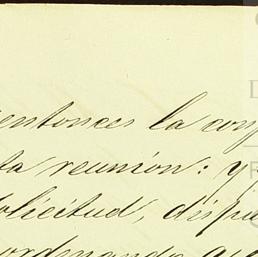 entonces la con
ta reunion: y
olicitud, dispu
ordenando que